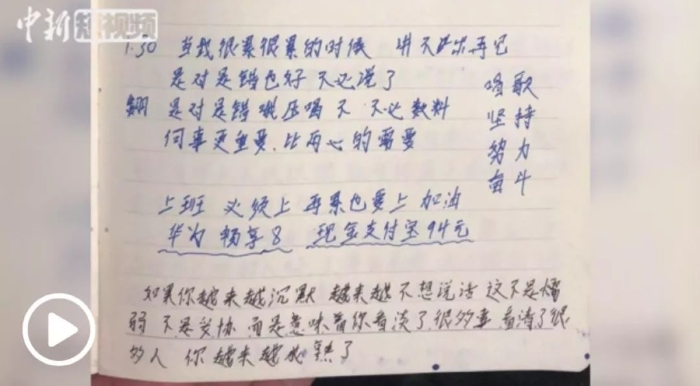 中新短视频
1.30 当我很累很累的时候 讲不出再见
是对是错也好 不必说了
是对是错 不必数料
何事更重要 比两心的需要
唱歌
坚持
努力
奋斗
上班 必须上 再累也要上 加油
华为 畅享8 现金支付宝94元
如果你越来越沉默 越来越不想说话 这不是懦
弱 不是妥协 而是意味着你看淡了很多事 看清了很
多的人 你越来越成熟了